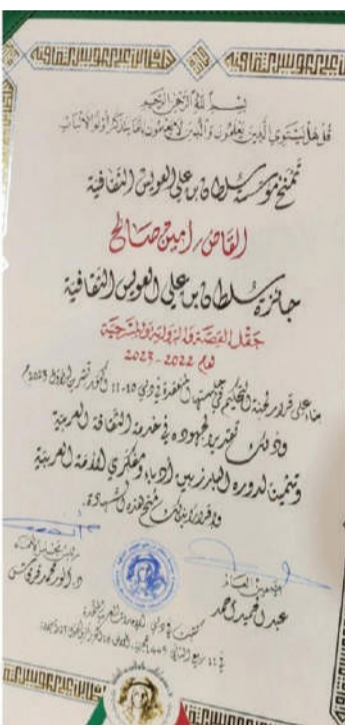 بسم الله الرحمن الرحيم
قل هل يستوي الذين يعلمون والذين لا يعلمون إنما يتذكر أولو الألباب
تمنح مؤسسة سلطان بن علي العويس الثقافية
القاص/ أمين صالح
جائزة سلطان بن علي العويس الثقافية
حقل القصة والرواية والمسرحية
لعام 2022-2023
بناءً على قرار لجنة التحكيم في جلستها المنعقدة في دبي 10-11 أكتوبر تشرين الأول 2023م
وذلك تقديراً لجهوده في خدمة الثقافة العربية
وتثميناً لدوره البارز بين أدباء ومفكري الأمة العربية
وإقراراً بذلك مُنح هذه الشهادة.
الأمين العام
عبد الحميد أحمد
رئيس مجلس الأمناء
د. أنور محمد قرقاش
كتبت في دبي